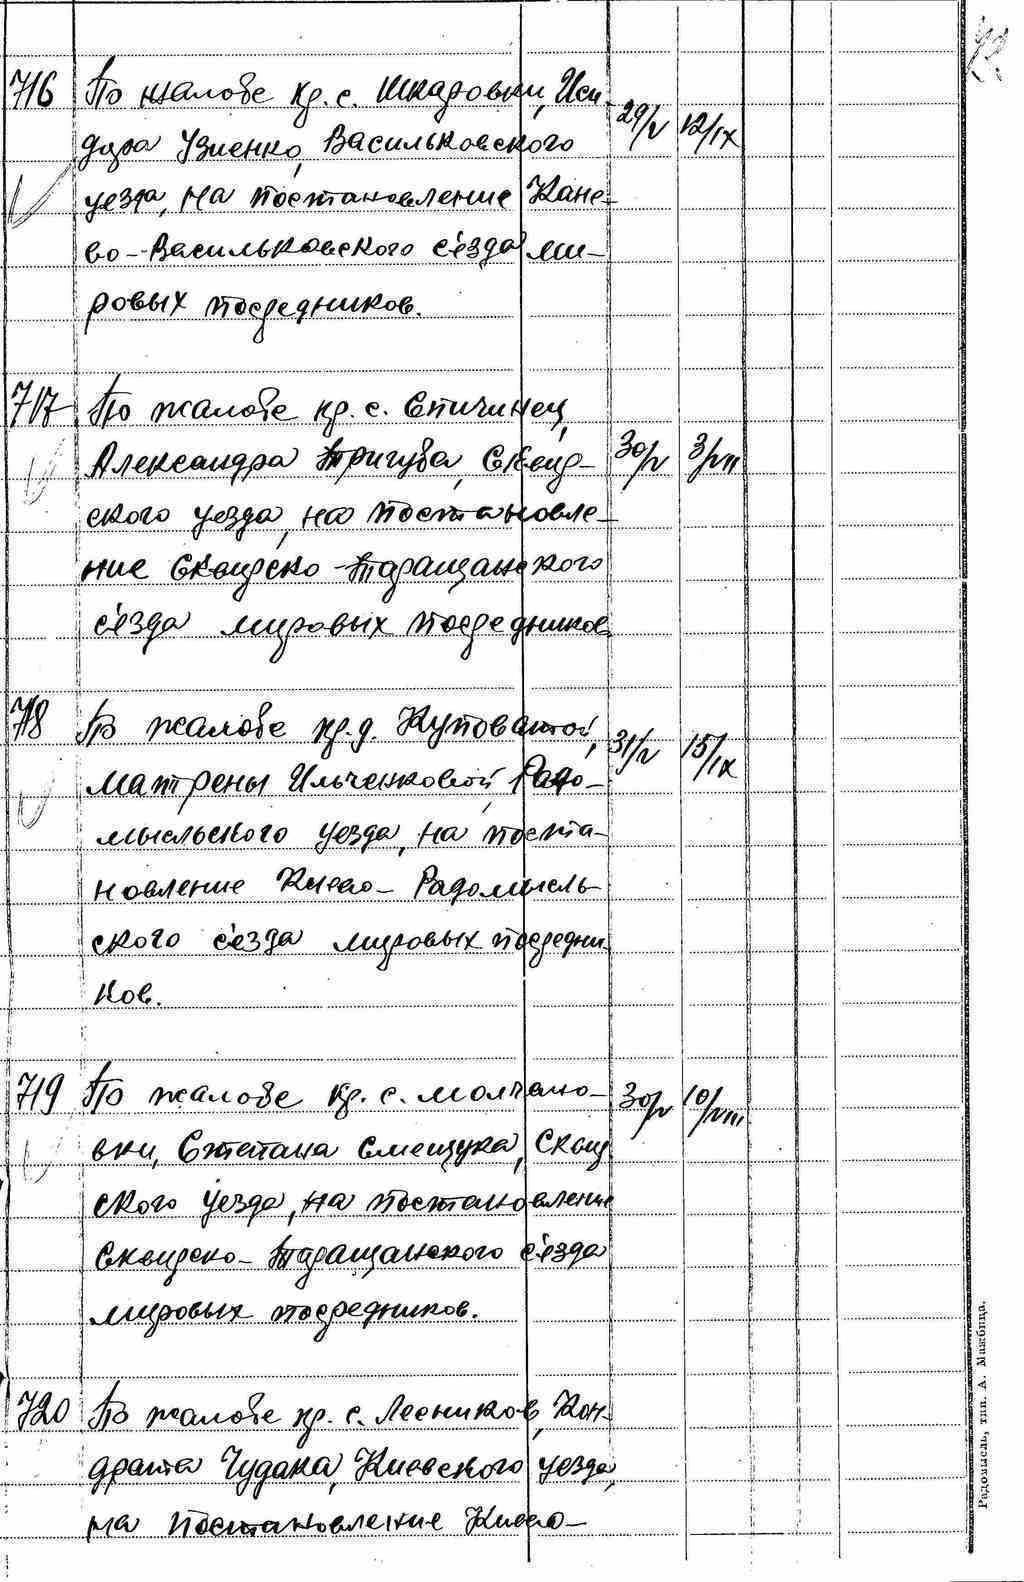 716 По жалобе кр. с. Шкаровки, Иси-
дора Узиенко, Васильковского 29/V 12/IX
уезда, на постановление Кане-
во-Васильковского с'езда ми-
ровых посредников.
717 По жалобе кр. с. Спичинец,
Александра Тригуба, Сквир- 30/V 3/VII
ского уезда, на постановле-
ние Сквирско-Таращанского
с'езда мировых посредников
718 По жалобе кр. д. Куповатой, 31/V 15/IX
Матрены Ильченковой, Радо-
мысльского уезда, на поста-
новление Киево-Радомысль-
ского с'езда мировых посредни-
ков.
719 По жалобе кр. с. Молчано- 30/V 10/VIII
вки, Степана Смещука, Сквир
ского уезда, на постановление
Сквирско-Таращанского с'езда
мировых посредников.
720 По жалобе кр. с. Лесников, Кон-
драта Чудака, Киевского уезда,
на постановление Киево-
Радомысль, тип. А. Мажбица.